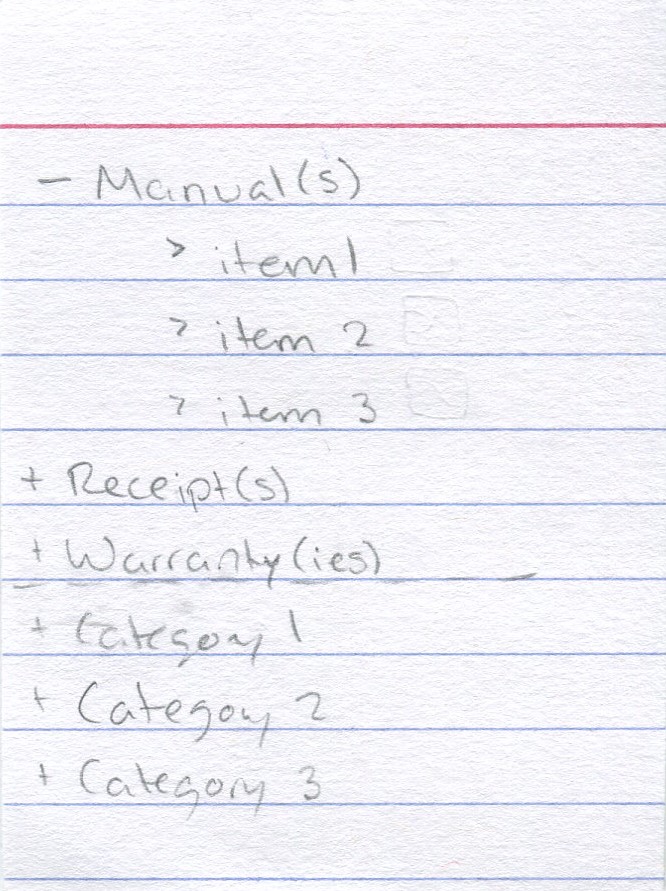 - Manual(s)
> item 1
> item 2
> item 3
+ Receipt(s)
+ Warranty(ies)
+ Category 1
+ Category 2
+ Category 3